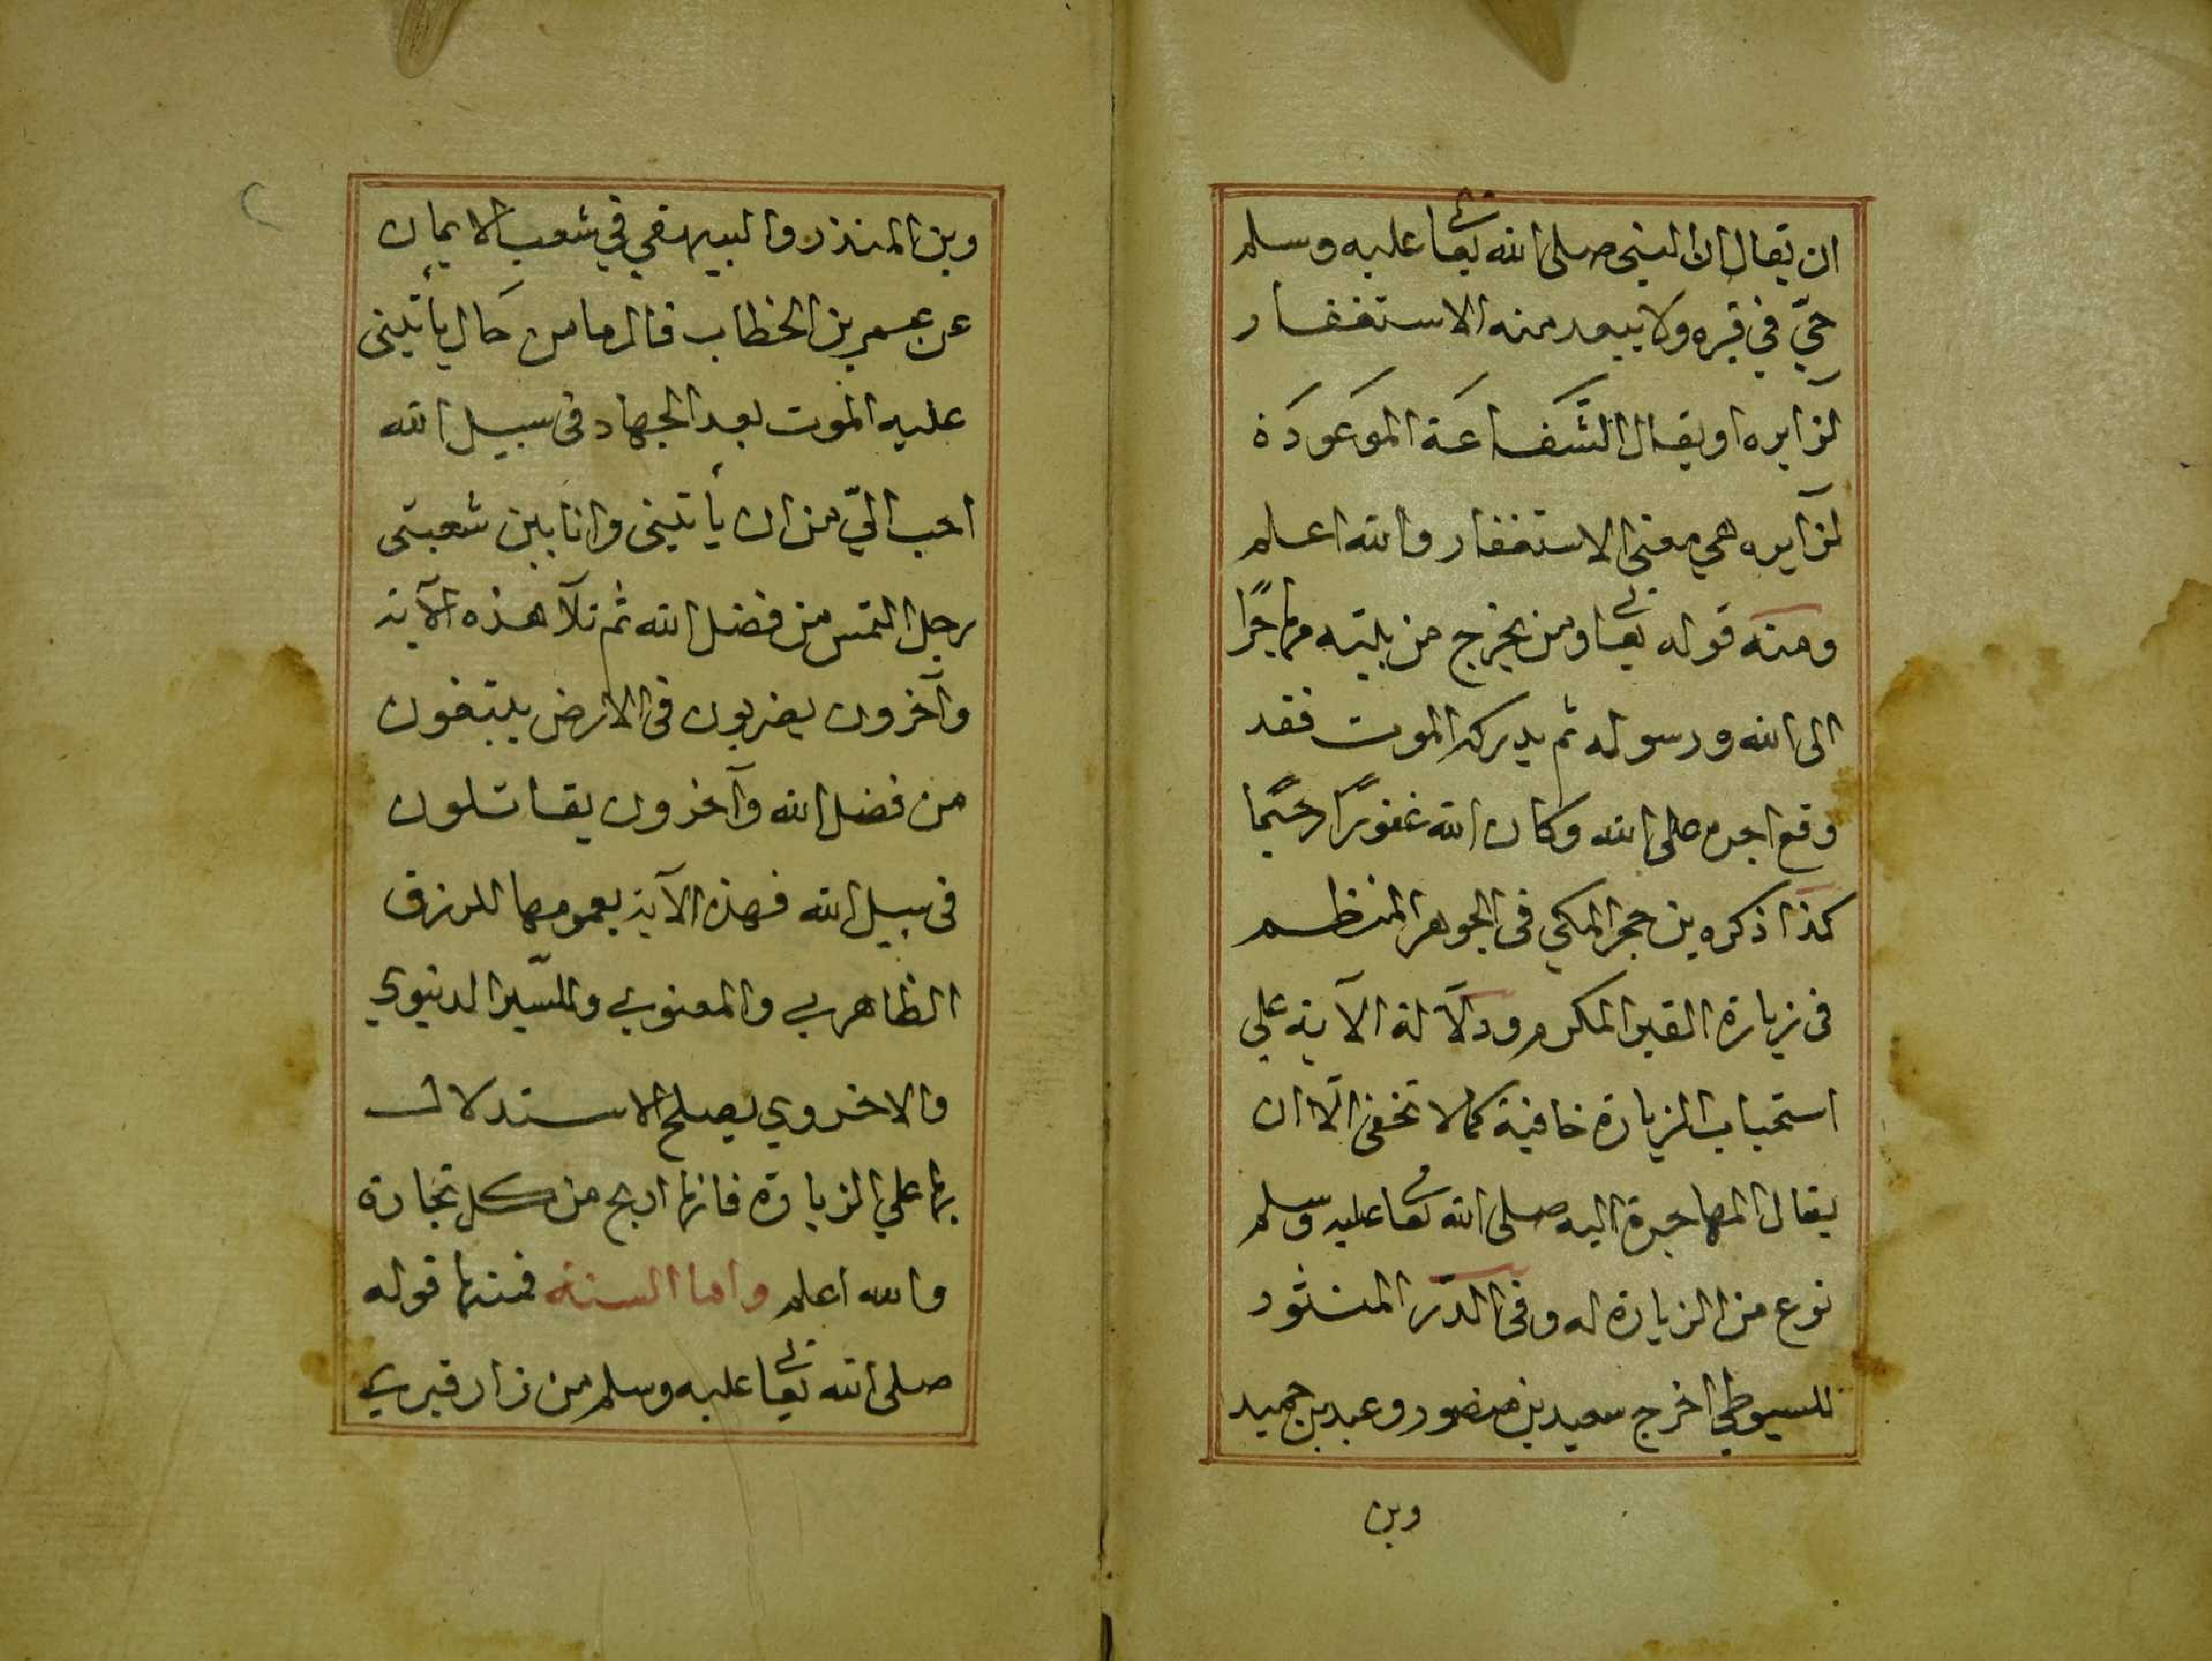 ان يقال ان النبي صلى الله تعا عليه وسلم
حيّ في قبره ولا يبعد منه الاستغفار
لزآيره او يقال الشَّفاعَة الموَعَودَة
لزآيره هي معنى الاستغفار والله اعلم
ومنه قوله تعا ومن يخرج من بيته مهاجرًا
الى الله ورسوله ثم يدركه الموت فقد
وقع اجره على الله وكان الله غفورًا رحيمًا
كذا ذكره بن حجر المكي في الجوهر المنظم
في زيارة القبر المكرم ودلآلة الآية علي
استحباب الزيارة خافية كما لا تخفى الّا ان
يقال المهاجرة اليه صلى الله تعا عليه وسلم
نوع من الزيارة له وفي الدّر المنثور
للسيوطي اخرج سعيد بن منصور وعبد بن حميد
وبن
وبن المنذر والبيهقي في شعب الايمان
عن عمر بن الخطاب قال ما من حَال يأتيني
عليه الموت بعد الجهاد في سبيل الله
احب اليّ من ان يأتيني وانا بين شعبتي
رحل التمس من فضل الله ثم تلآ هذه الآية
وآخرون يضربون في الارض يبتغون
من فضل الله وآخرون يقاتلون
في سبيل الله فهذه الآية بعمومها للرزق
الظاهري والمعنوي والسّير الدنيوي
والاخروي يصلح الاستدلال
بها علي الزيارة فانها اربح من كل تجارة
والله اعلم واما السنة فمنها قوله
صلى الله تعا عليه وسلم من زار قبري